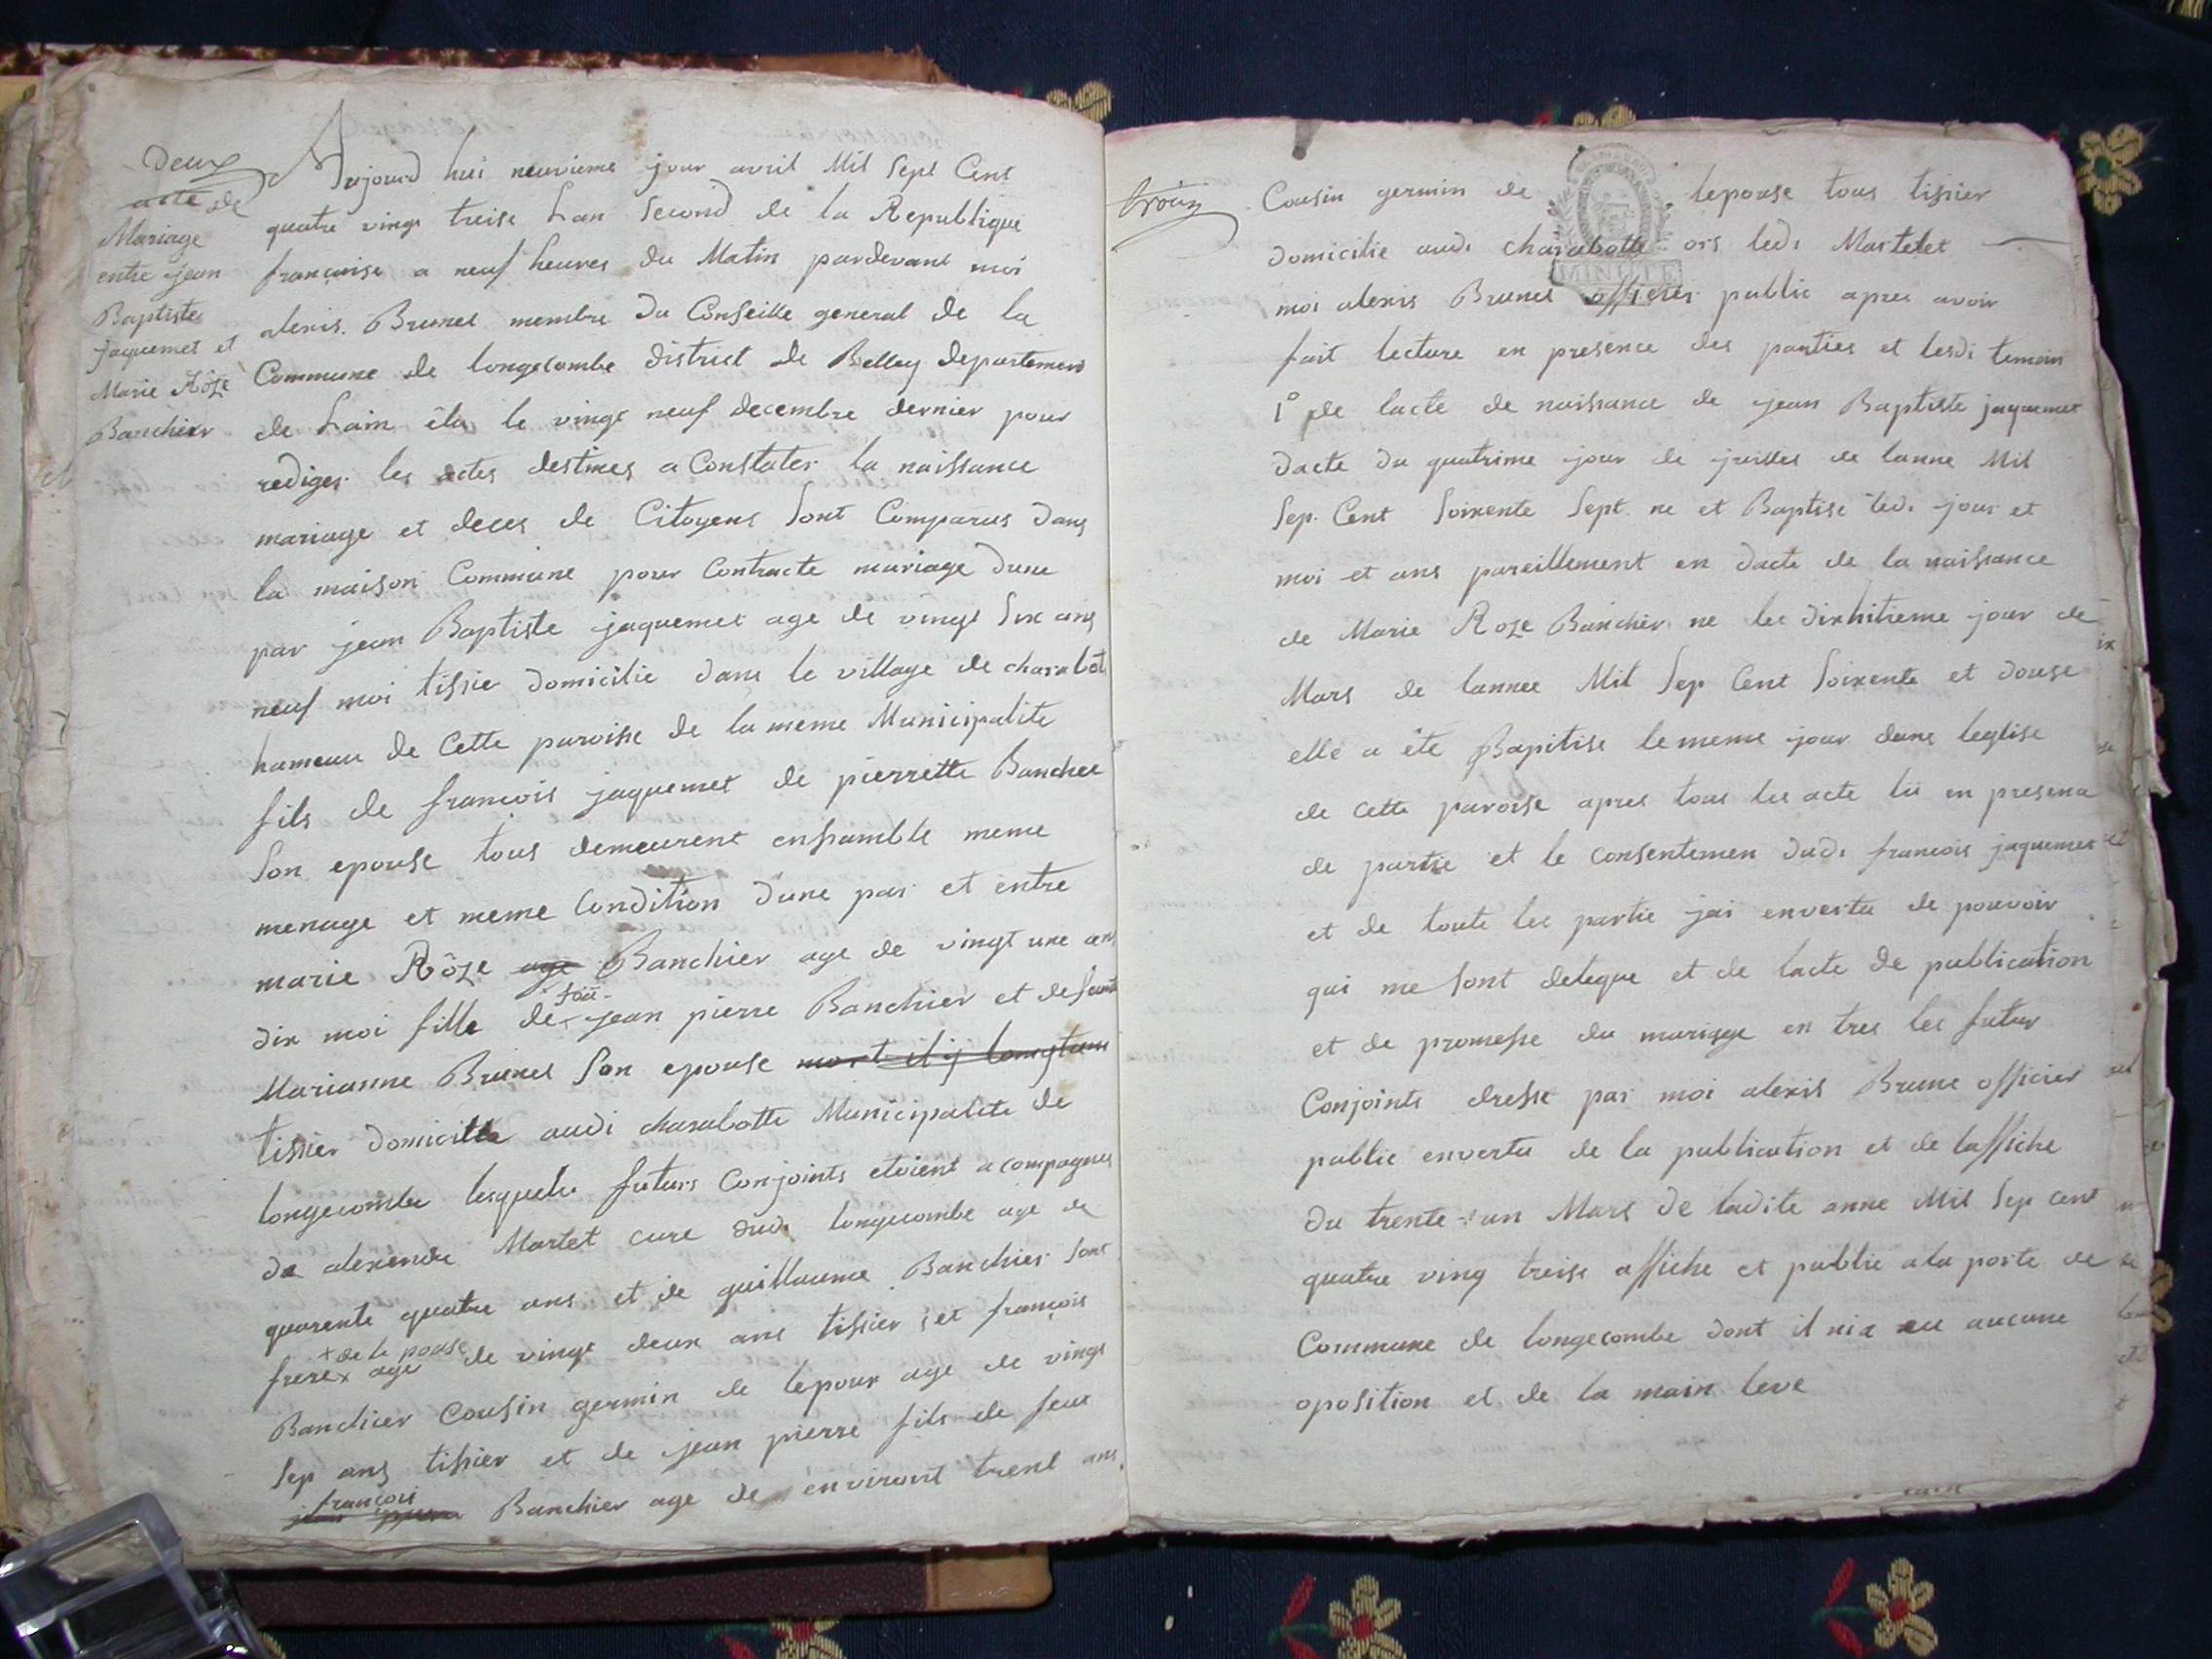 deux
acte de
Mariage
entre jean
Baptiste
jaquemet et
Marie Rôze
Banchier
Aujourd hui neuvieme jour avril Mil Sept Cent
quatre vingt treise Lan Second de la Republique
françoise a neuf heures du Matin pardevant moi
alexis Brunet membre du Conseille general de la
Commune de longecombe district de Belley departement
de Lain élu le vingt neuf decembre dernier pour
rediger les actes destines a Constater la naissance
mariage et deces de Citoyens Sont Comparus dans
la maison Commune pour Contracte mariage dune
par jean Baptiste jaquemet age de vingt Six ans
neuf moi tissie domicilie dans le village de charabot
hameau de Cette paroisse de la meme Municipalite
fils de françois jaquemet de pierrette Banchee
Son epouse tous demeurent ensamble meme
menage et meme Condition dune par et entre
marie Rôze age Banchier age de vingt une ans
dix moi fille de jean pierre Banchier et defunt
Marianne Brunet Son epouse mort il ij longtem
tissier domicille audi charabotte Municipalite de
longecombe lesquels futurs Conjoints etoient acompagnes
de alexendre Martet cure dudi longecombe age de
quarente quatre ans et de guillaume Banchier Sont
frere x age de vingt deux ans tissier et françois
x de le pouse
Banchier Cousin germin de lepoux age de vingt
Sep ans tissier et de jean pierre fils de feue
françois
Banchier age de environt trent ans
Cousin germin de lepouse tous tissier
domicilie audi charabotte ors ledi Martelet
MINUTE
moi alexis Brunet officier public apres avoir
fait lecture en presence des parties et lesdi temoin
1° de lacte de naissance de jean Baptiste jaquemet
dacte du quatrime jour de juillet de lanne Mil
Sep Cent Soixente Sept ne et Baptise ledi jour et
moi et ans pareillement en dacte de la naissance
de Marie Roze Banchier ne les dixhitieme jour de
Mars de lannee Mil Sep Cent Soixente et douse
elle a éte Bapitise le meme jour dans leglise
de cette paroise apres tous les acte lu en presena
de partie et le consentemen dudi francois jaquemet
et de toute les partie jai envertu de pouvoir
qui me Sont delegue et de lacte de publication
et de promesse du mariage en tres les futur
Conjoints dresse par moi alexis Brune officier
public envertu de la publication et de laffiche
du trente un Mars de ladite anne Mil Sep cent
quatre ving treise affiche et publie a la porte de
Commune de longecombe dont il nia eu aucune
oposition et de la main leve